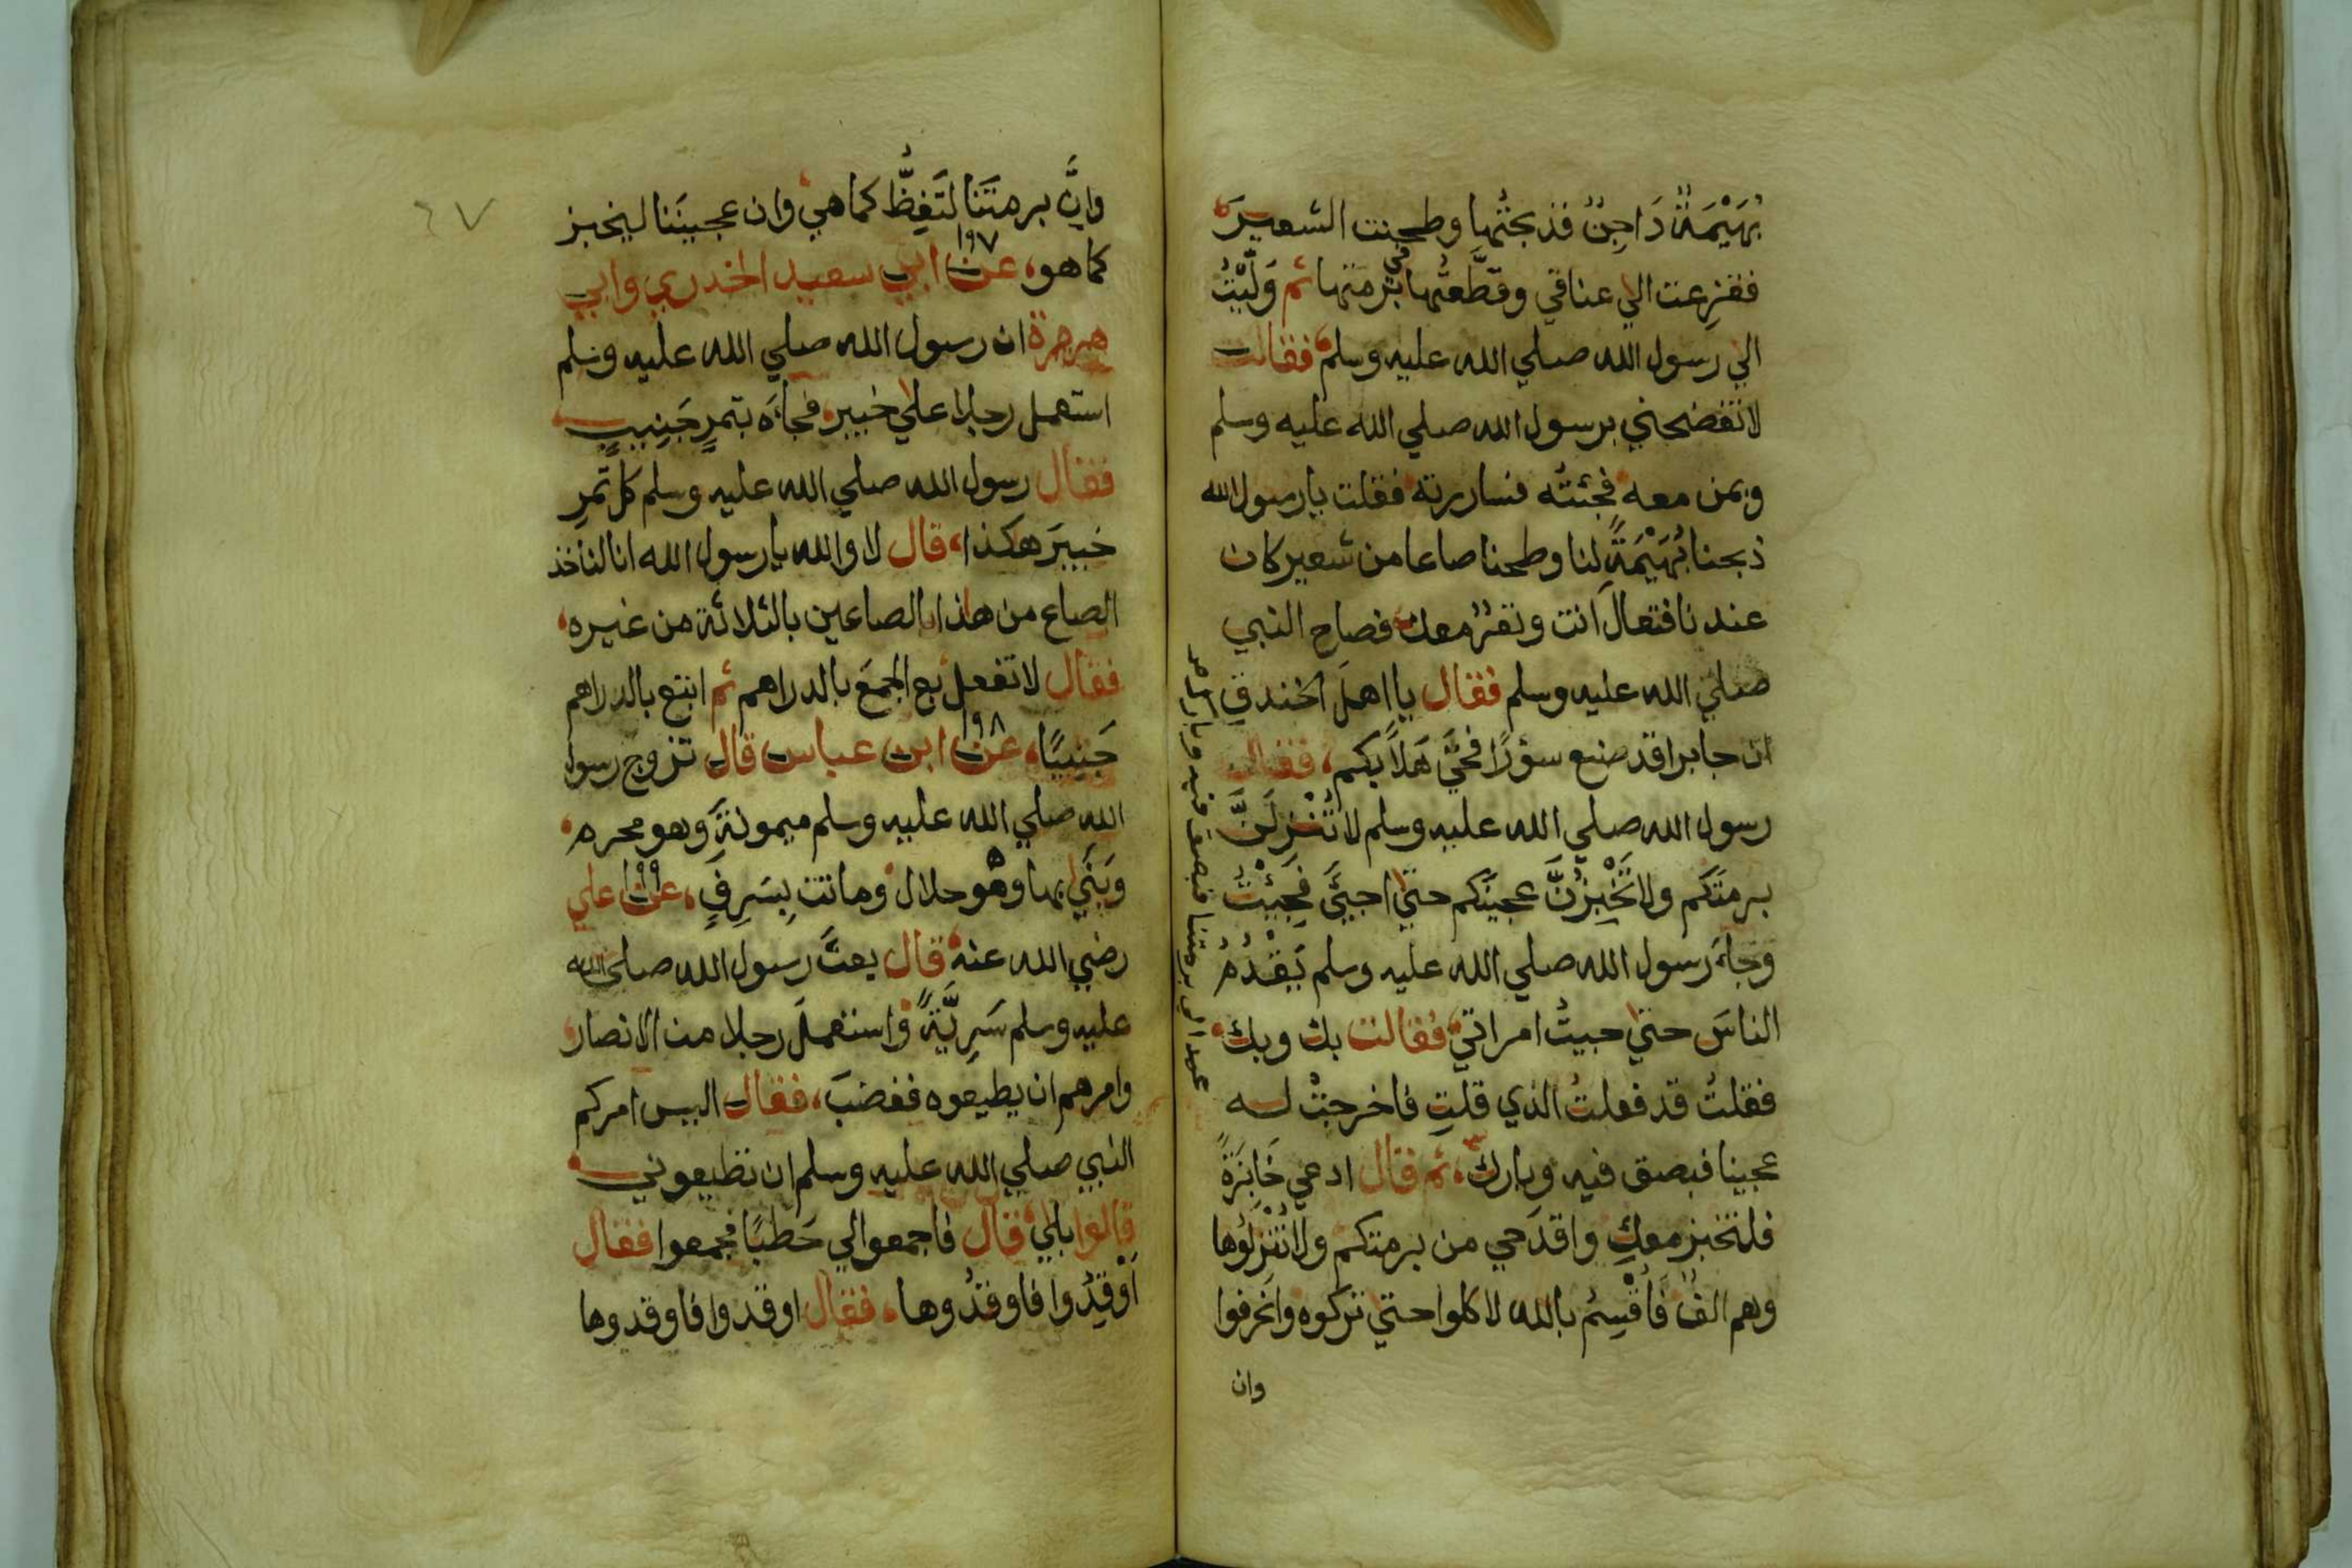 بُهَيْمَةٌ دَاجِنٌ فذبحتُها وطحنت الشعيرَ
ففزِعت الي عناقي وقطَّعتُها في برمتها ثم وَلَّيْتُ
الي رسول الله صلي الله عليه وسلم فقالت
لا تفضحني برسول الله صلي الله عليه وسلم
وبمن معه فجئتُه فساررته فقلت يا رسول الله
ذبحنا بُهَيْمَةً لنا وطحنا صاعا من شعير كان
عندنا فتعالَ انت ونفرٌ معك فصاح النبي
صلي الله عليه وسلم فقال يا اهلَ الخندق
ان جابرا قد صنع سؤرًا فحَيَّ هَلاً بكم، فقال
رسول الله صلي الله عليه وسلم لا تُنْزِلَنَّ
برمتَكم ولا تَخْبِزُنَّ عجينَكم حتي اجيَّئَ فجَيْئْتُ
وجاءَ رسول الله صلي الله عليه وسلم يَقْدُمُ
الناسَ حتي جيتُ امراتي فقالت بك وبك
فقلتُ قد فعلتُ الذي قلتِ فاخرجتْ لــه
عجينا فبصق فيه وبارك، ثم قال ادعي خَابِزَةً
فلتخبز معكِ واقدَحي من برمتكم ولا تُنْزِلُوها
وهم الفٌ فَاُقْسِمُ بالله لاكلوا حتي تركوه وانحرفوا
وان
عمد الي برمتنا فبصق فيه وبارك
وانَّ برمتَنا لتَغِطُّ كما هي وان عجينَنا ليخبز
كما هو، ١٩٧ عن ابي سعيد الخدري وابي
هريرة ان رسول الله صلي الله عليه وسلم
استعمل رجلا علي خيبر فجاءَه بتمرٍ جَنِيبٍ
فقال رسول الله صلي الله عليه وسلم كل تمرِ
خيبرَ هكذا، قال لا والله يا رسول الله انا لناخذ
الصاع من هاذا بالصاعين بالثلاثة من غيره،
فقال لا تفعل بَع الجمعَ بالدراهم ثم ابتع بالدراهم
جَنِيبًا، ١٩٨ عن ابن عباس قال تزوج رسول
الله صلي الله عليه وسلم ميمونةَ وهو محرم
وَبَنَي بها وهو حلال وماتت بِسَرِفٍ، ١٩٩ عن علي
رضي الله عنه قال بعثَ رسول الله صلي الله
عليه وسلم سَرِيَّةً واستعملَ رجلا من الانصار
وامرهم ان يطيعوه فغضبَ، فقال اليس امركم
النبي صلي الله عليه وسلم ان تطيعوني
قالوا بلي قال فاجمعوا لي حَطَبًا فجمعوا فقال
اَوْقِدُوا فاوقدُوها، فقال اوقدوا فاوقدوها
٦٧